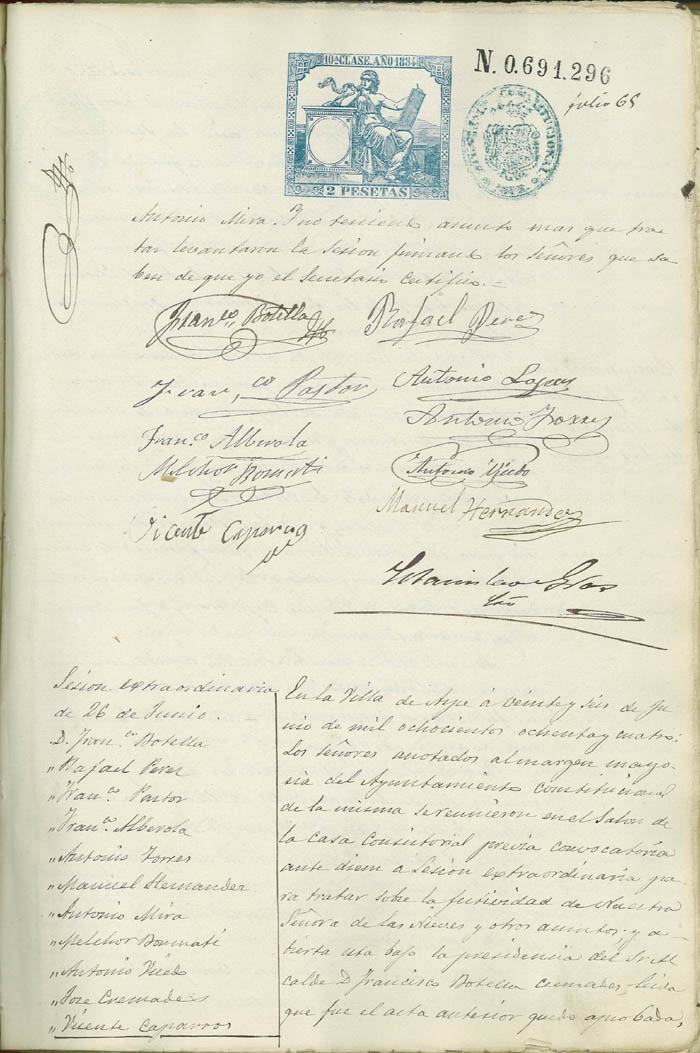 10ª CLASE. AÑO 1884
2 PESETAS
N. 0.691.296
julio 65
Antonio Mira. Y no teniendo asunto mas que tra
tar levantaron la sesion firmando los Señores que sa
ben de que yo el Secretario certifico.=
Franco. Botella
Rafael Perez
Franco Pastor
Antonio
Antonio Torres
Fran.co Alberola
Melchor Bonmati
Antonio
Manuel Hernandez
Vicente Caparros
Srio
Sesion extraordinaria
de 26 de Junio.
D. Fran.co Botella
„ Rafael Perez
„ Fran.co Pastor
„ Fran.co Alberola
„ Antonio Torres
„ Manuel Hernandez
„ Antonio Mira
„ Melchor Bonmati
„ Antonio
„ Jose Cremades
„ Vicente Caparros
En la Villa de Aspe á veinte y seis de Ju
nio de mil ochocientos ochenta y cuatro:
Los Señores anotados al margen mayo-
ria del Ayuntamiento constitucional
de la misma se reunieron en el Salon de
la casa Consistorial previa convocatoria
ante diem a sesion extraordinaria pa
ra tratar sobre la festividad de Nuestra
Señora de las Nieves y otros asuntos; y a-
bierta esta bajo la presidencia del Sr. Al
calde D. Francisco Botella Cremades, leida
que fue el acta anterior quedo aprobada,